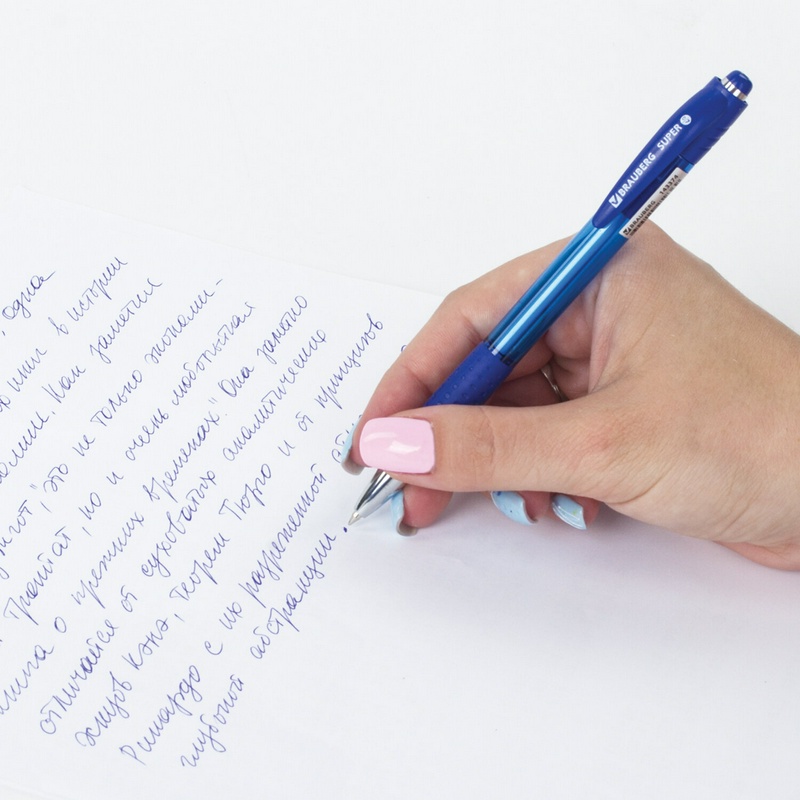 одна
книг в истории
Как заметил
", это не только экономи-
трактат, но и очень любопытная
книга о прежних временах". Она заметно
отличается от суховатых аналитических
этюдов Кэнэ, теорем Тюрго и от принципов
Рикардо с их разреженной
глубиной абстракции.
BRAUBERG SUPER
BRAUBERG 143374